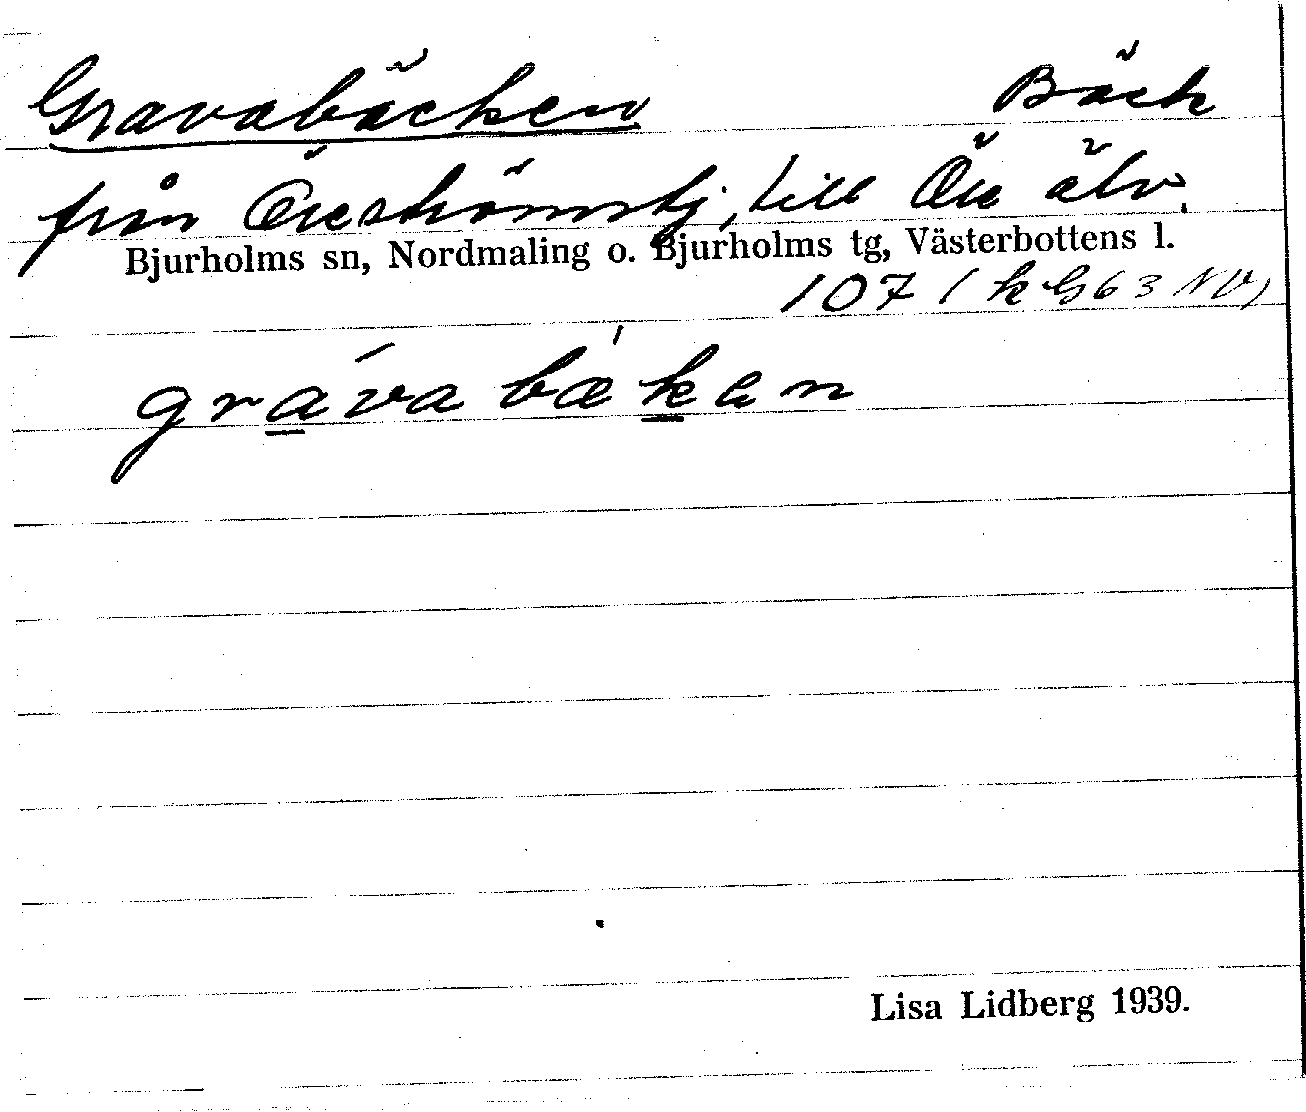 Gravabäcken Bäck
från Öreströmstj, till Öre älv.
Bjurholms sn, Nordmaling o. Bjurholms tg, Västerbottens l.
107 (k G63 NV)
grava bækan
Lisa Lidberg 1939.